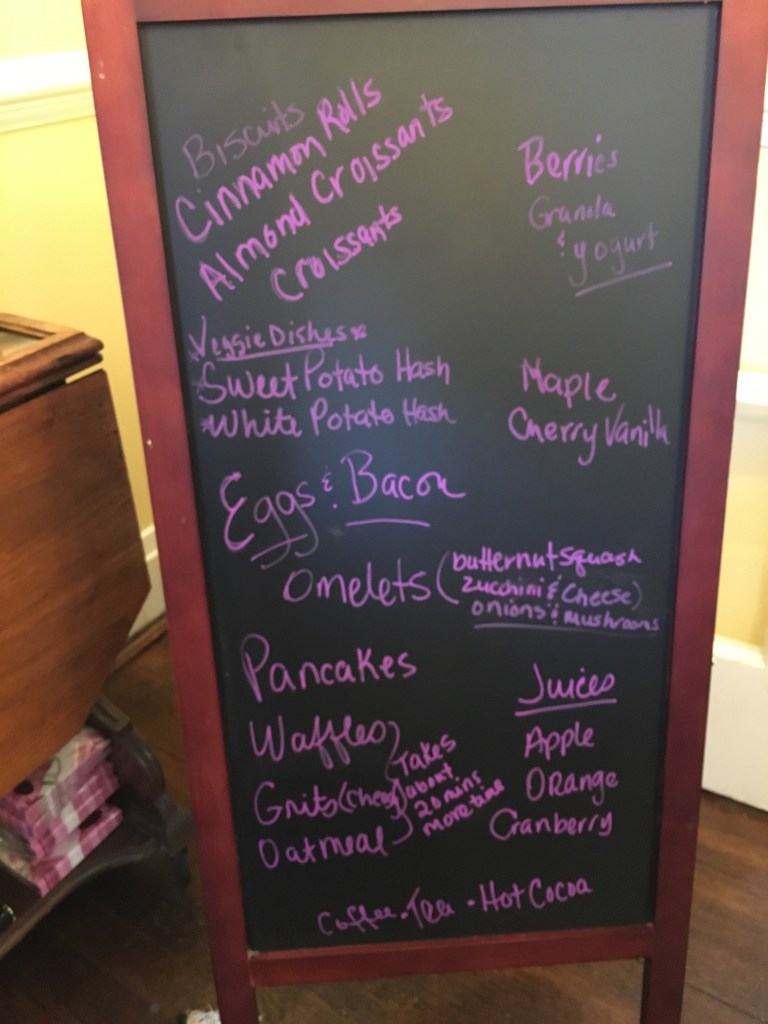 Biscuits
Cinnamon Rolls
Almond Croissants
Croissants
Berries
Granola
& yogurt
Veggie Dishes*
*Sweet Potato Hash
*White Potato Hash
Maple
Cherry Vanilla
Eggs & Bacon
Omelets (butternut squash
zucchini & Cheese)
onions & mushrooms
Pancakes
Waffles
Grits (Cheese)
Oatmeal
Takes
about
20 mins
more time
Juices
Apple
Orange
Cranberry
Coffee • Tea • Hot Cocoa